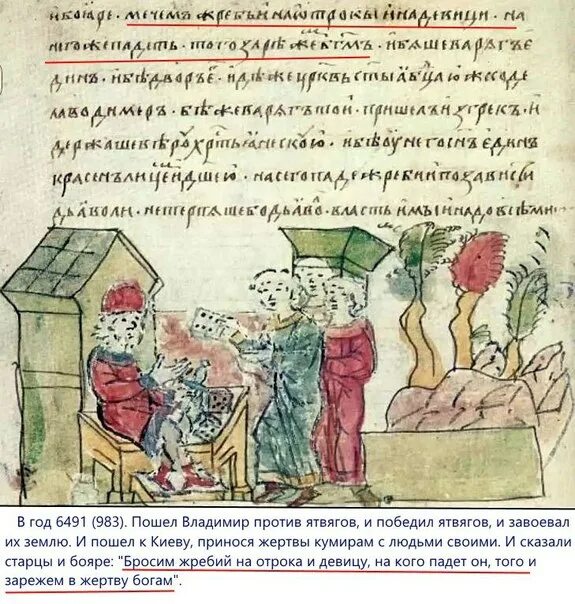 и боꙗре. мечемъ жребьи на ѿтрокы и на девици. на
него же падеть. того зарѣжемъ бг҃мъ. и бѧше варѧгъ е
динъ. и бѣ дворъ е. идѣже црк҃вь ст҃ыꙗ бц҃а юже сде
ла володимеръ. бѣ же варѧгъ тои. пришелъ изъ грекъ. и
держаше вѣроу хрс҃тьꙗнескоую. и бѣ оу него сн҃ъ единъ
красенъ лицем и дш҃ею. на сего паде жребии по зависи
дьаволи. не терпѧше бо дьаво. власть имыи надо всѣми
В год 6491 (983). Пошел Владимир против ятвягов, и победил ятвягов, и завоевал
их землю. И пошел к Киеву, принося жертвы кумирам с людьми своими. И сказали
старцы и бояре: "Бросим жребий на отрока и девицу, на кого падет он, того и
зарежем в жертву богам".